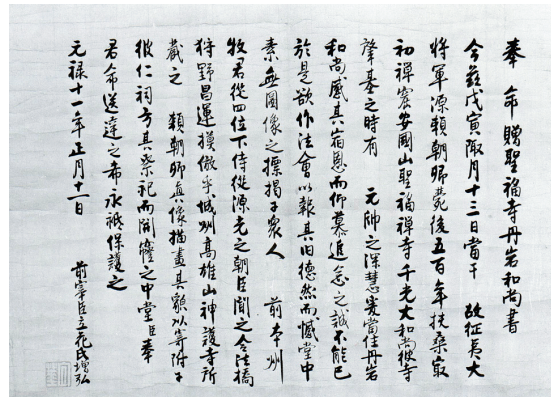 奉 命贈聖福寺丹岩和尚書
今玆戊寅陬月十三日當于 故征夷大
將軍源頼朝卿薨後五百年扶桑最
初禪窟安國山聖福禪寺千光大和尚彼寺
肇基之時有 元帥之深慧爰當住丹岩
和尚感其宿恩而仰慕追念之誠不能已
於是欲作法會以報其旧德然而憾堂中
素無圖像之標掲于衆人 前本州
牧君從四位下侍從源光之朝臣聞之令法橋
狩野昌運摸倣乎城州高雄山神護寺所
藏之 頼朝卿真像描畫其貌以寄附于
彼仁祠方其祭祀而開筵之中堂臣奉
君命送達之希永祗保護之
元禄十一年正月十一日
前宰臣立花氏増弘